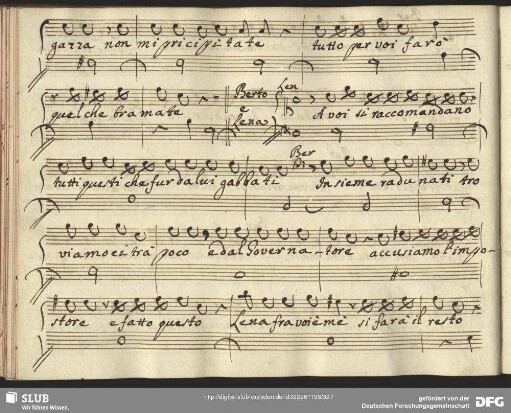 gazza non mi pricipitate tutto per voi farò
quel che bramate Berto e Lena Len A voi si raccomandano
tutti questi che fur da lui gabbati Ber Insieme radunati tro
viamoci trà poco e dal Governa-tore accusiamo l'impo-
store e fatto questo Lena fra voi e mè si farà il resto
SLUB
Wir führen Wissen.
gefördert von der
Deutschen Forschungsgemeinschaft
DFG